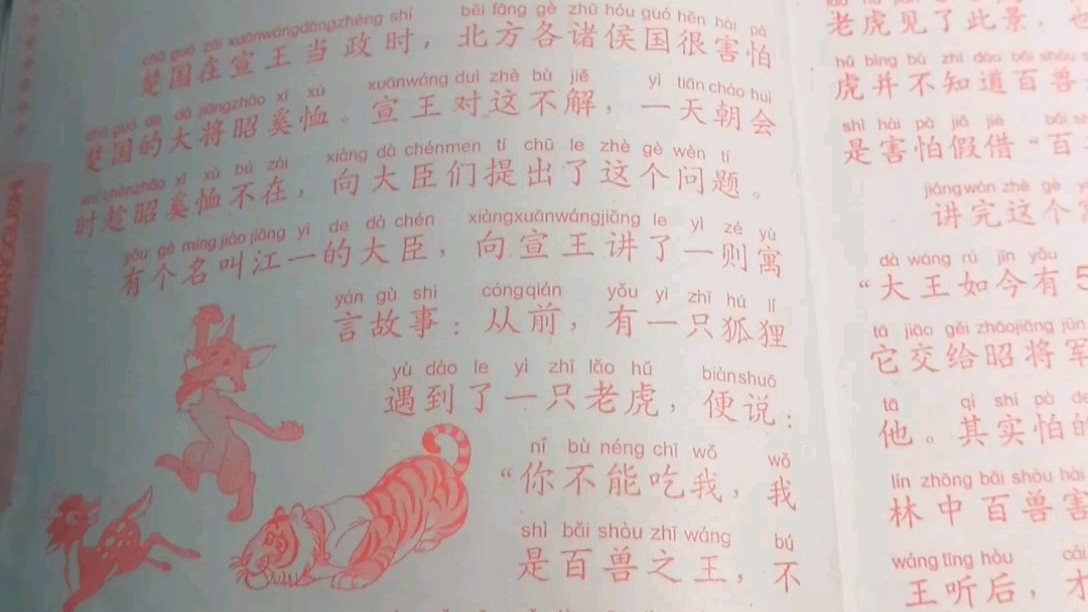 chǔ guó zài xuānwángdāngzhèng shí běi fāng gè zhū hóu guó hěn hài pà
楚国在宣王当政时，北方各诸侯国很害怕
chǔ guó de dà jiāngzhāo xī xù xuānwáng duì zhè bù jiě yì tiān cháo huì
楚国的大将昭奚恤。宣王对这不解，一天朝会
shí chènzhāo xī xù bú zài xiàng dà chénmen tí chū le zhè gè wèn tí
时趁昭奚恤不在，向大臣们提出了这个问题。
yǒu gè míng jiào jiāng yī de dà chén xiàngxuānwángjiǎng le yì zé yù
有个名叫江一的大臣，向宣王讲了一则寓
yán gù shì cóngqián yǒu yì zhī hú lí
言故事：从前，有一只狐狸
yù dào le yì zhī lǎo hǔ biànshuō
遇到了一只老虎，便说：
nǐ bù néng chī wǒ wǒ
“你不能吃我，我
shì bǎi shòu zhī wáng bú
是百兽之王，不
老虎见了此景，
hǔ bìng bù zhī dào bǎi shòu
虎并不知道百兽
shì hài pà jiǎ jiè
是害怕假借“百
jiǎngwán zhè gè
讲完这个
dà wáng rú jīn yǒu
“大王如今有
tā jiāo gěi zhāojiāng jūn
它交给昭将军
tā qí shí pà
他。其实怕的
lín zhōng bǎi shòu hài
林中百兽害
wáng tīng hòu cái
王听后，才